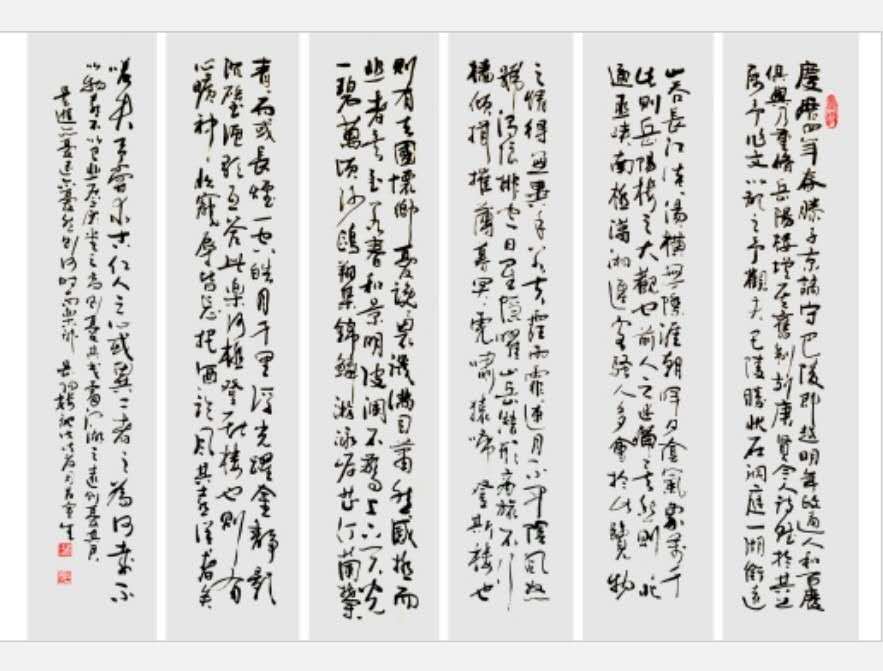 慶曆四年春滕子京謫守巴陵郡越明年政通人和百廢
俱興乃重修岳陽樓增其舊制刻唐賢今人詩賦於其上
屬予作文以記之予觀夫巴陵勝狀在洞庭一湖銜遠
山吞長江浩浩湯湯橫無際涯朝暉夕陰氣象萬千
此則岳陽樓之大觀也前人之述備矣然則北
通巫峽南極瀟湘遷客騷人多會於此覽物
之情得無異乎若夫霪雨霏霏連月不開陰風怒
號濁浪排空日星隱曜山岳潛形商旅不行
檣傾楫摧薄暮冥冥虎嘯猿啼登斯樓也
則有去國懷鄉憂讒畏譏滿目蕭然感極而
悲者矣至若春和景明波瀾不驚上下天光
一碧萬頃沙鷗翔集錦鱗游泳岸芷汀蘭鬱
青青而或長煙一空皓月千里浮光躍金靜影
沉璧漁歌互答此樂何極登斯樓也則有
心曠神怡寵辱皆忘把酒臨風其喜洋洋者矣
嗟夫予嘗求古仁人之心或異二者之為何哉不
以物喜不以己悲居廟堂之高則憂其民處江湖之遠則憂其君
是進亦憂退亦憂然則何時而樂耶 岳陽樓記